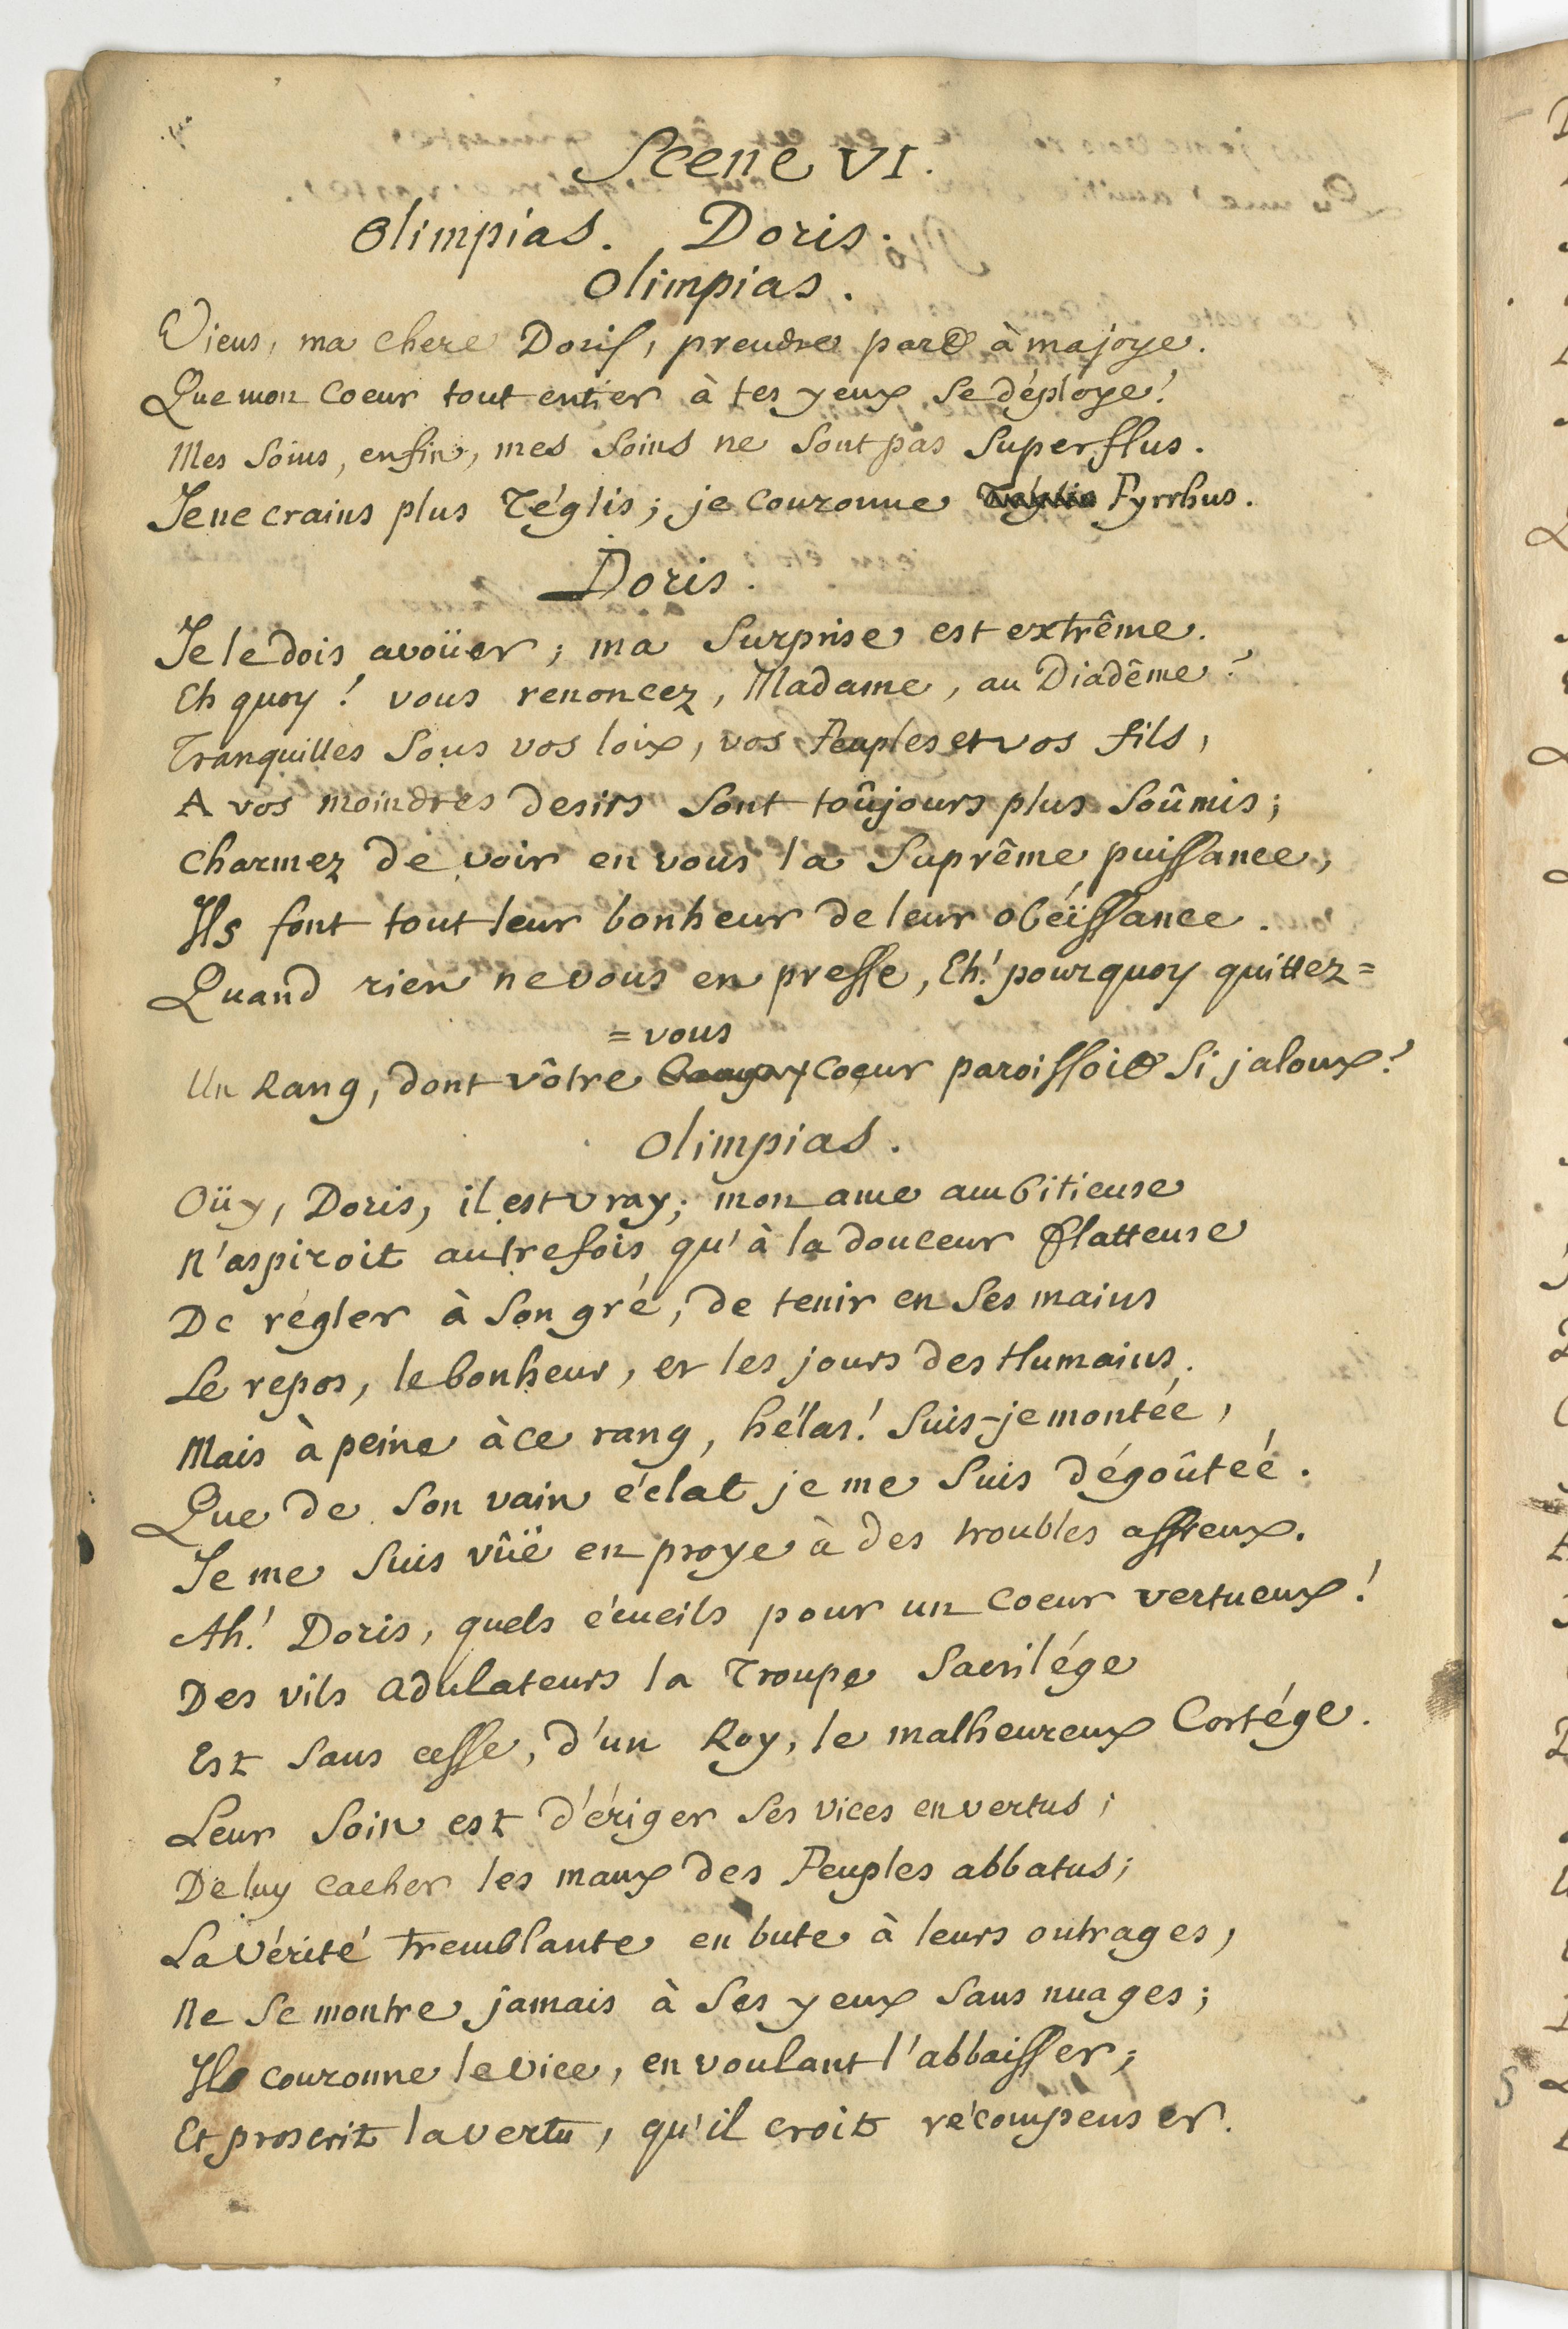 Scene VI.
Olimpias. Doris.
Olimpias.
Viens, ma chere Doris, prendre part à ma joye.
Que mon Coeur tout entier à tes yeux se déploye!
Mes soins, enfin, mes soins ne sont pas superflus.
Je ne crains plus Téglis; je couronne Téglis Pyrrhus.
Doris.
Je le dois avoüer; ma surprise est extrême.
Eh quoy! vous renoncez, Madame, au Diadême?
Tranquilles sous vos loix, vos Peuples et vos fils,
A vos moindres desirs sont toûjours plus soûmis;
Charmez de voir en vous la suprême puissance,
Ils font tout leur bonheur de leur obéïssance.
Quand rien ne vous en presse, Eh! pourquoy quittez=
=vous
Un Rang, dont vôtre Coeur paroissoit si jaloux?
Olimpias.
Oüy, Doris, il est vray; mon ame ambitieuse
N'aspiroit autrefois qu'à la douceur flatteuse
De régler à son gré, de tenir en ses mains
Le repos, le bonheur, et les jours des Humains.
Mais à peine à ce rang, hélas! suis-je montée,
Que de son vain éclat je me suis dégoûtée.
Je me suis vûë en proye à des troubles affreux.
Ah! Doris, quels écueils pour un Coeur vertueux!
Des vils adulateurs la Troupe sacrilége
Est sans cesse, d'un Roy, le malheureux Cortége.
Leur soin est d'ériger ses vices en vertus;
De luy cacher les maux des Peuples abbatus;
La Vérité tremblante en bute à leurs outrages,
Ne se montre jamais à ses yeux sans nuages;
Il couronne le vice, en voulant l'abbaisser;
Et proscrit la vertu, qu'il croit récompenser.